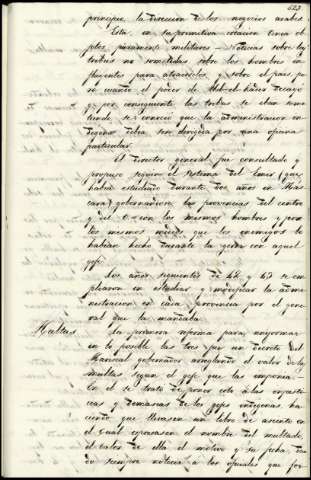 523
principe, la direccion de los negocios arabes.
Esta en su primitiva creacion tenia ob
jetos puramente militares - Noticias sobre las
tribus no sometidas sobre los hombres in
fluentes para atraerselos, y sobre el pais, pe
ro cuando el poder de Abd-el-Kader decayó
y por consiguiente las tribus se iban some
tiendo se conoció que la administracion in
digena debia ser dirigida por una oficina
particular.
El Director general fue consultado y
propuso seguir el sistema del Emir (que
habia estudiado durante dos años en Mas
cara) gobernandose las provincias del centro
y del O. con los mismos hombres y por
los mismos medios que los enemigos lo
habian hecho durante la guerra con aquel
gefe.
Los años siguientes de 42 y 43 se em
plearon en estudiar y modificar la admi
nistracion en cada provincia por el gene
ral que la mandaba.
Multas La primera reforma para uniformar
en lo posible las tres fue un decreto del
Mariscal gobernador arreglando el valor de las
multas segun el gefe que las imponia.
En el se trató de poner coto a las injusti
cias y demasias de los gefes indigenas ha
ciendo que llevasen un libro de asiento en
el cual expresasen el nombre del multado,
el valor de ella el motivo y su fecha, dan
do siempre noticia a los oficiales que for